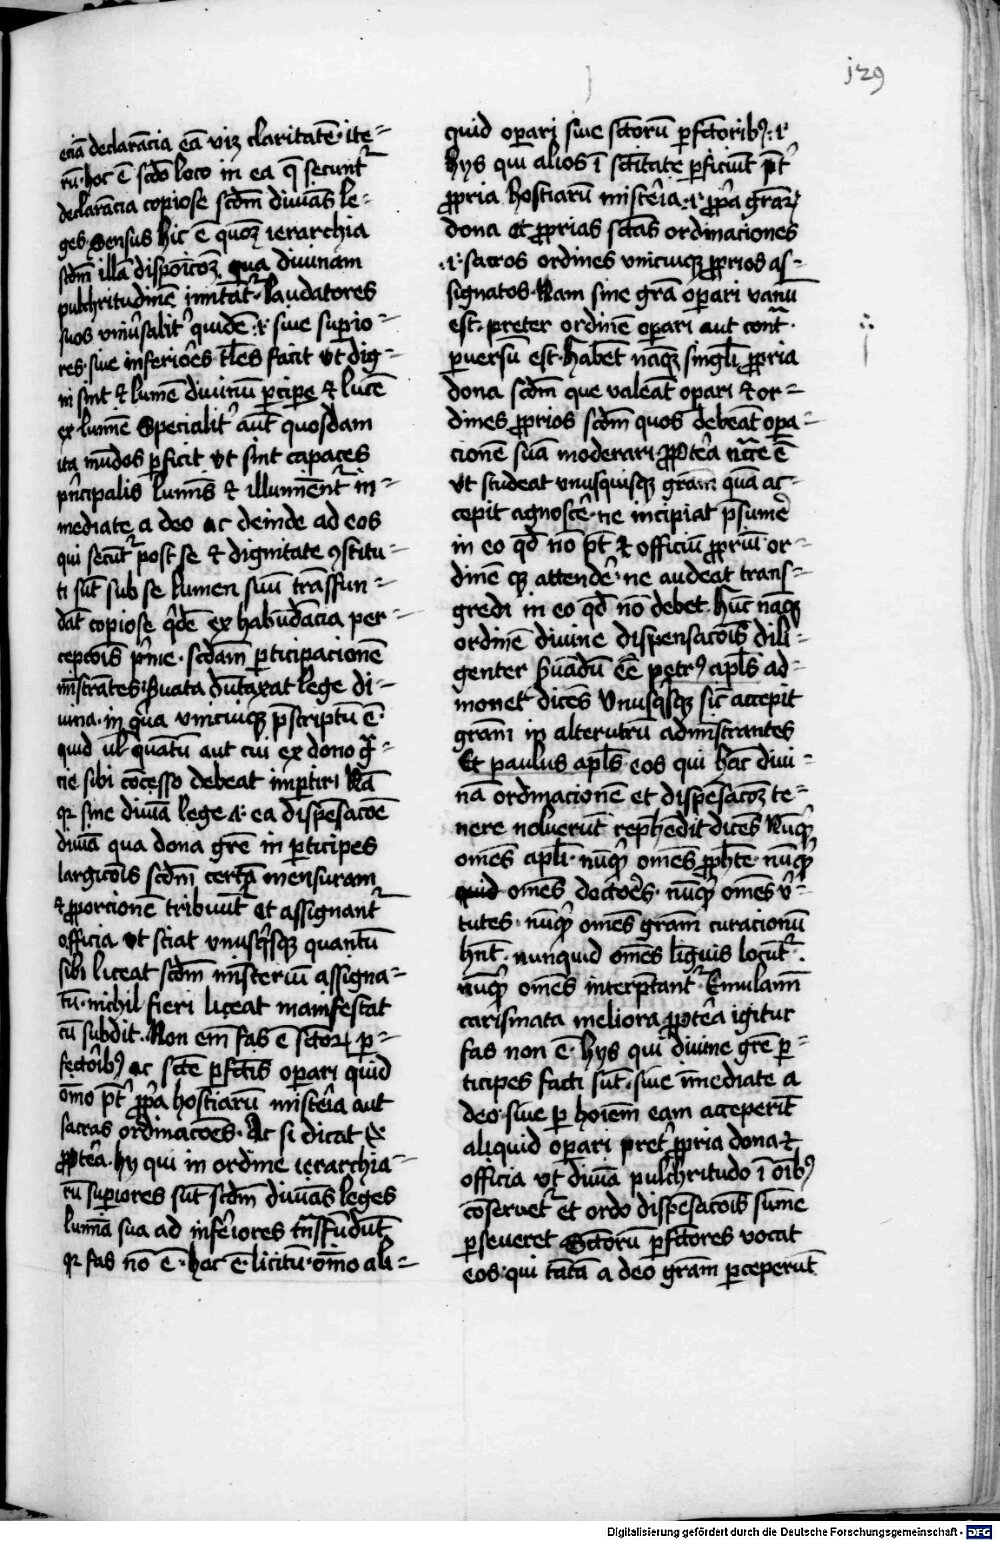 j29
eciā declarācia eā viz claritatē · ite=
rū · hoc ē scďo loco in ea q̄ secunt᷑
declarācia copiose scďm diuīas le=
ges Sensus hic ē quoꝝ ierarchia
scďm illā disposicōꝫ qua diuinam
pulchritudinē imitāt᷑ · laudatores
suos vniūsalit᷑ quidē · ⁊ siue supio=
res siue inferiōes tl̄es facit vt dig=
ni sint ⁊ lumē diuinū ꝑcipe ⁊ lucē
ex lumine Specialit᷑ aūt quosdam
ita mūdos ꝑficit vt sint capaces
pͥncipalis lumīs ⁊ illuminēt᷑ in=
mediate a deo ac deinde ad eos
qui secūt᷑ post se ⁊ dignitate ꝯstitu=
ti sūt sub se lumen suū trāsfun=
dāt copiose qͥdē ex habūdācia per=
cepcōis pͥme · scďam ꝑticipacionē
mīstrātes · ẜuata dūtaxat lege di=
uina · in qua vnicuiqꝫ p̄scriptū ē ·
quid ul̄ quātū aut cui ex dono gͣ=
cie sibi cōcesso debeat imptiri Nā
qꝛ sine diuīa lege .i. ea dispēsacōē
diuīa qua dona grē in ꝑticipes
largicōis scďm certā mensuram
⁊ ꝓporcionē tribuūt᷑ et assignant᷑
officia vt sciat vnusqͥsqꝫ quantū
sibi liceat scďm mīsteriū assigna=
tū · nichil fieri liceat manifestat
cū subdit · Non em̄ fas ē sc̄toꝝ ꝑ=
fectōibꝰ ac sc̄te ꝑfc̄tis operari quid
oīmo p̄t ꝓpͥa hostiarū mistēia aut
sacras ordinacōes · Ac si dicat
ꝓptēa · hy qui in ordine ierarchia=
rū supiores sūt scďm diuīas leges
lumīa sua ad infēiores trāsfūdūt
qꝛ fas nō ē · hac ē licitū · oīmo ali=
quid operari siue sc̄torū ꝑfc̄toribꝰ · .i.
hys qui alios ī sc̄titate ꝑficiūt p̄t᷑
ꝓpria hostiarū mistēia .i. ꝓpͥa gr̄aꝝ
dona et ꝓprias sc̄tas ordinaciones
.i. sacros ordines vnicuiqꝫ ꝓprios as=
signatos · Nam sine gr̄a operari vanū
est · preter ordinē operari aut contͣ ·
ꝑuersū est · habēt nāqꝫ singl̄i ꝓpria
dona scďm que valeāt operari ⁊ or=
dines ꝓprios scďm quos debeāt opa=
cionē suā moderari · ꝓptēa nc̄cē ē
vt studeat vnusquisqꝫ gr̄am quā ac=
cepit agnoscē · ne incipiat p̄sumē
in eo qď nō p̄t ⁊ officiū ꝓpriū or=
dinē qꝫ attendē · ne audeat trans=
gredi in eo qď nō debet · hūc nāqꝫ
ordinē diuine dispensacōis dili=
genter ẜuādū eē petrꝰ apl̄s ad=
monet dicēs Vnusqͥsqꝫ sic̄ accepit
gr̄am in alterutrū admīstrantes
Et paulus apl̄s eos qui hāc diui=
nā ordinacionē et dispēsacōꝫ te=
nere noluerūt rep̄hēdit dicēs Nūqͥd
omēs apl̄i · nūqͥd omēs ꝓphēte · nūqͥd
omēs doctōes · nūqͥd omēs v̄=
tutes · nūqͥd omēs gr̄am curacionū
hn̄t · nunquid omēs liguis locūt᷑ ·
nūqͥd omēs interp̄tant᷑ · Emulamī
carismata meliora ꝓptēa igitur
fas non ē · hys qui diuine grē ꝑ=
ticipes facti sūt · siue īmediate a
deo · siue ꝑ hoīem eam acceperīt
aliquid operari pret᷑ ꝓpria dona ⁊
officia vt diuīa pulchritudo ī oībꝰ
cōseruet᷑ et ordo dispēsacōis sūme
ꝑseueret Sc̄torū ꝑfc̄tores vocat
eos · qui tātā a deo gr̄am ꝑceperūt
Digitalisierung gefördert durch die Deutsche Forschungsgemeinschaft - DFG